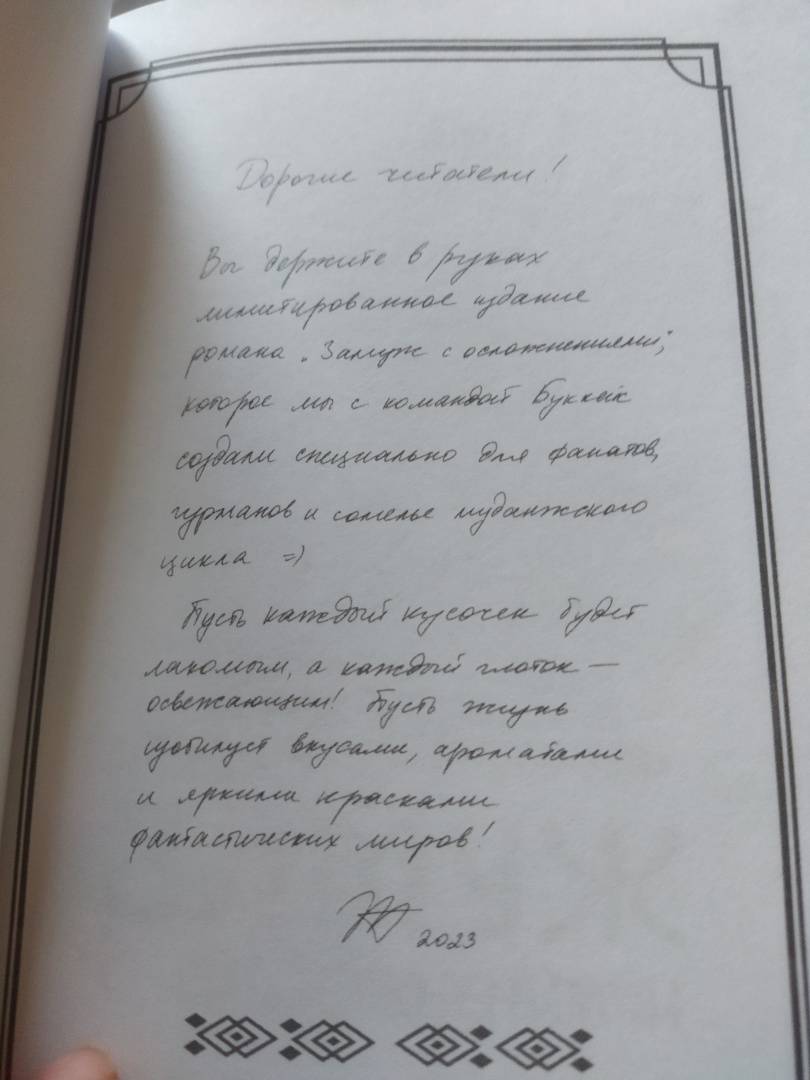 Дорогие читатели!
Вы держите в руках
лимитированное издание
романа „Замуж с осложнениями“,
которое мы с командой Буккейк
создали специально для фанатов,
гурманов и сомелье муданжского
цикла =)
Пусть каждый кусочек будет
лакомым, а каждый глоток —
освежающим! Пусть жизнь
изобилует вкусами, ароматами
и яркими красками
фантастических миров!
2023